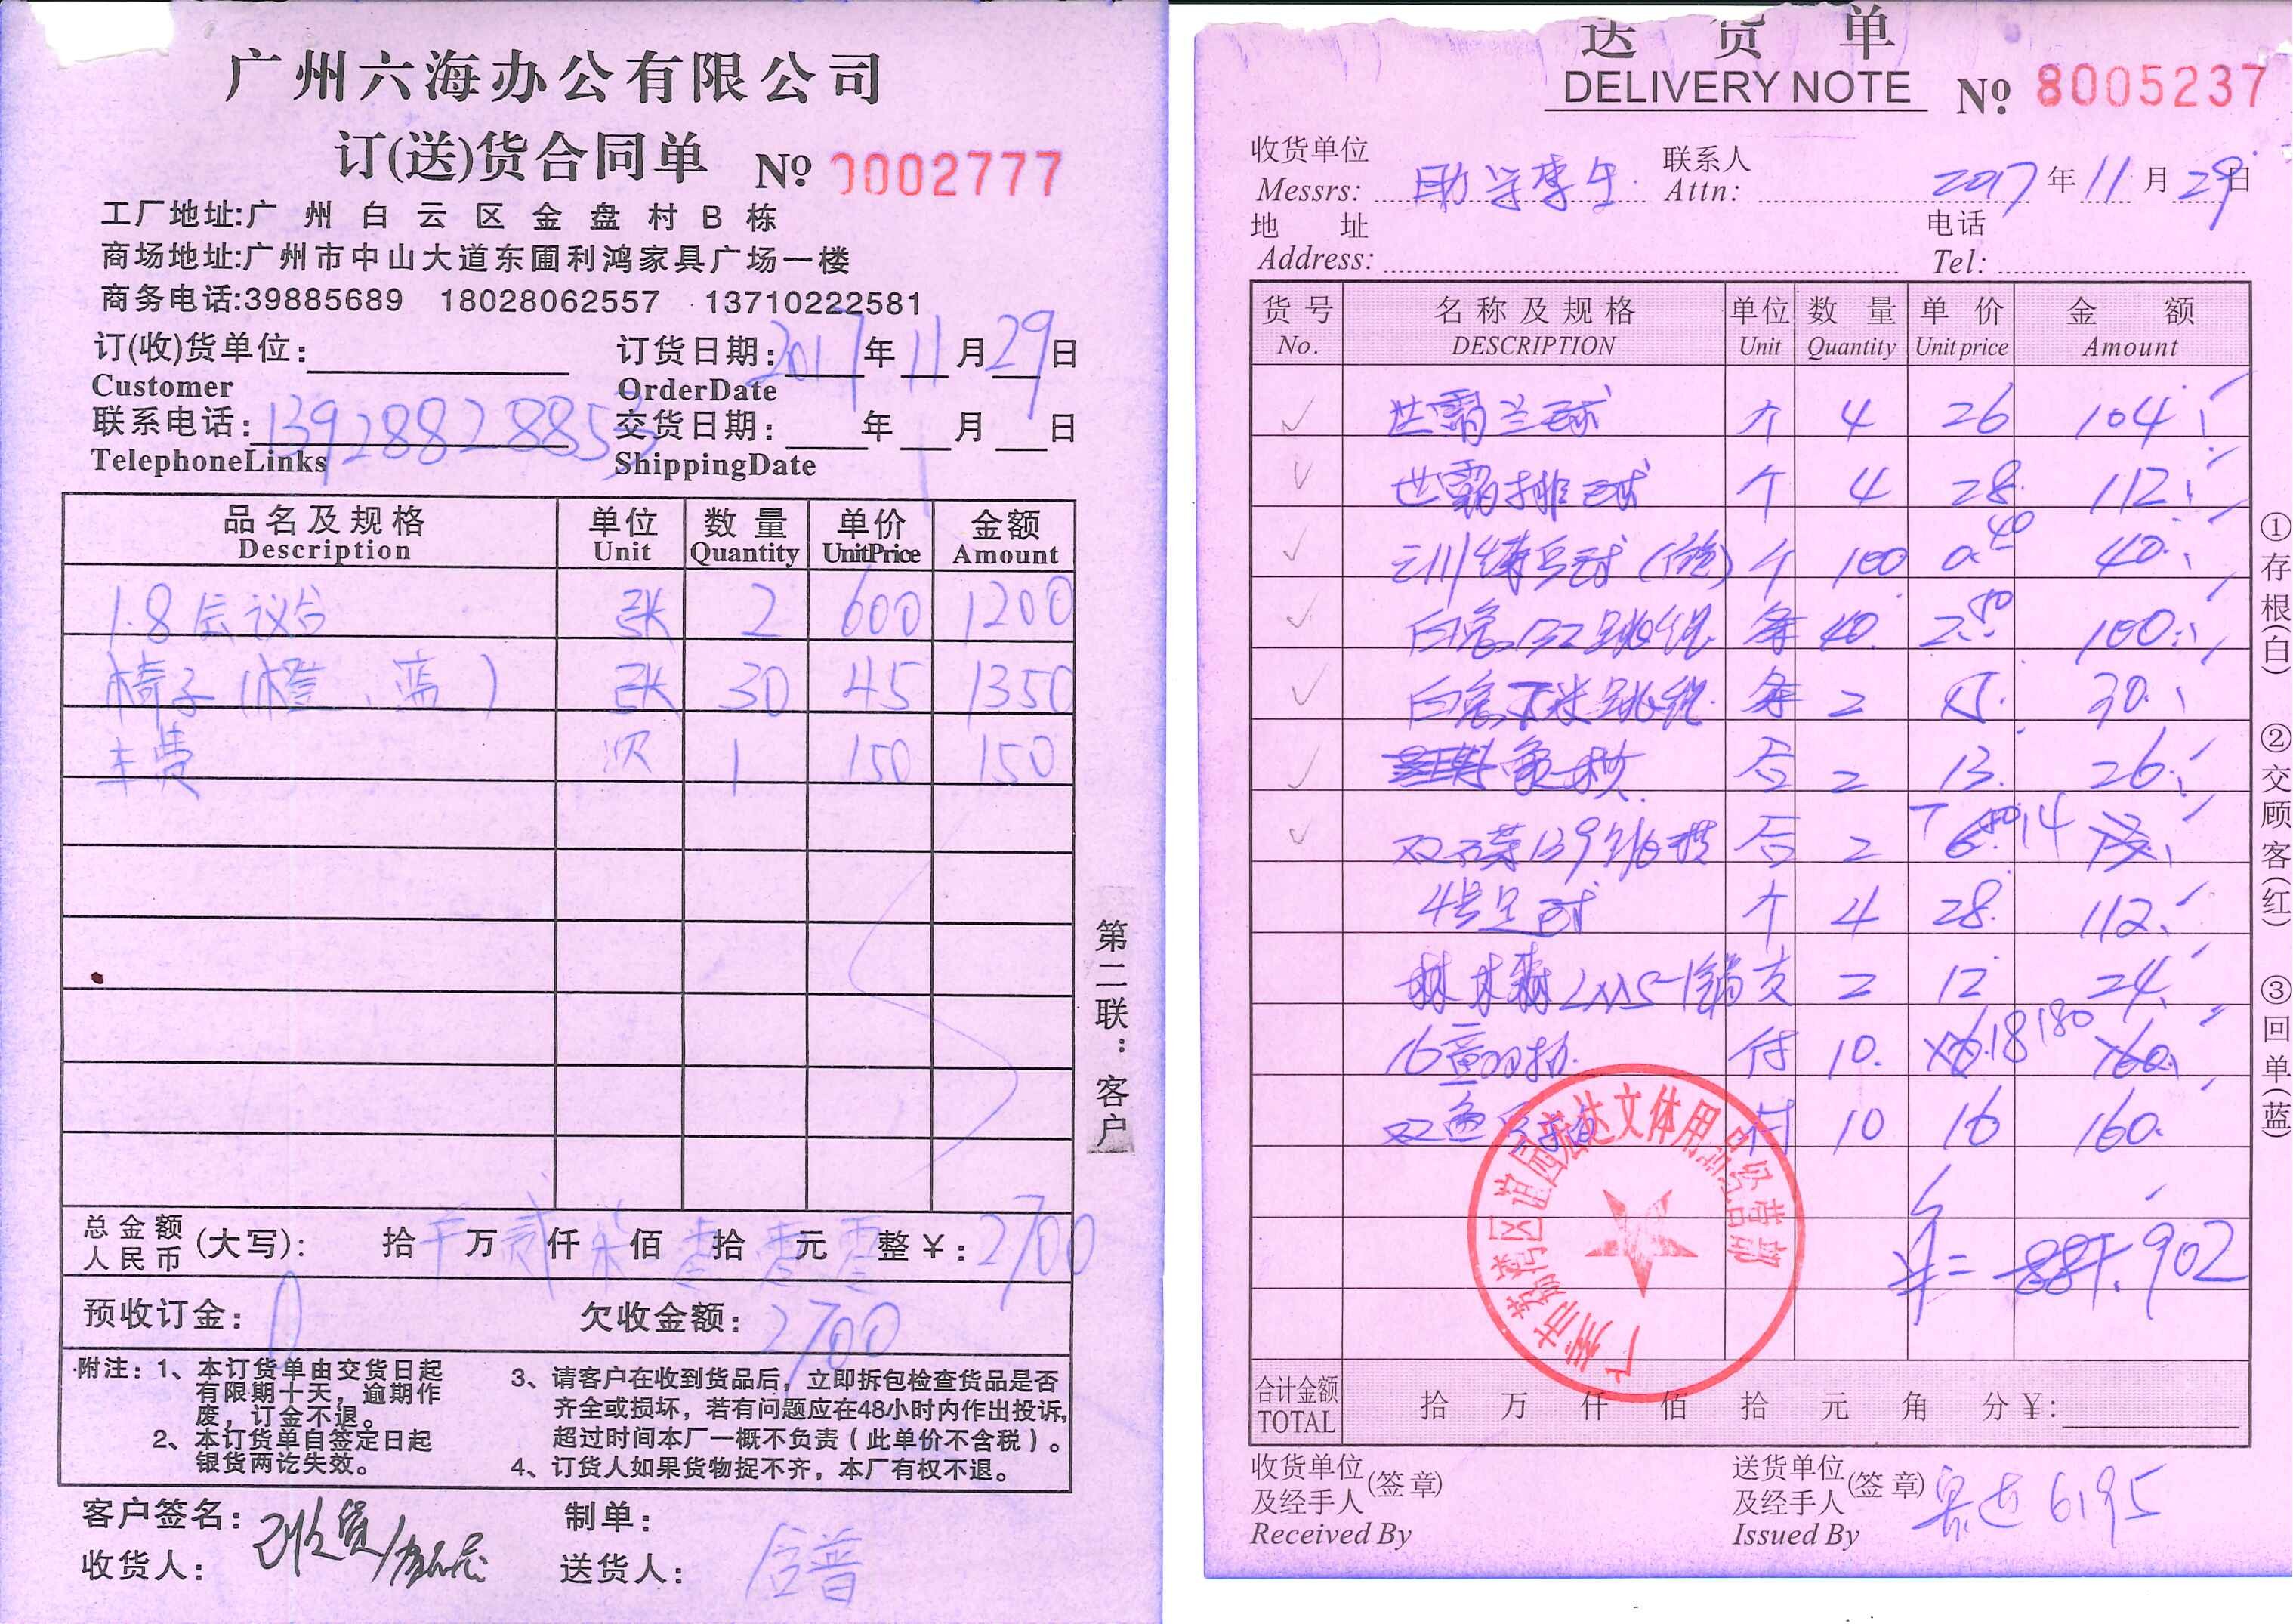 广州六海办公有限公司
订(送)货合同单 № 0002777
工厂地址:广州白云区金盘村B栋
商场地址:广州市中山大道东圃利鸿家具广场一楼
商务电话:39885689 18028062557 13710222581
订(收)货单位: 订货日期: 2017年11月29日
Customer OrderDate
联系电话: 13928828853 交货日期: 年 月 日
TelephoneLinks ShippingDate
品名及规格 单位 数量 单价 金额
Description Unit Quantity UnitPrice Amount
1.8会议台 张 2 600 1200
椅子(橙、蓝) 张 30 45 1350
车费 次 1 150 150
第二联：客户
总金额人民币(大写): 拾 万 贰 仟 柒 佰 零 拾 零 元 零 整 ¥: 2700
预收订金: 0 欠收金额: 2700
附注: 1、本订货单由交货日起
有限期十天，逾期作
废，订金不退。
2、本订货单自签定日起
银货两讫失效。
3、请客户在收到货品后，立即拆包检查货品是否
齐全或损坏，若有问题应在48小时内作出投诉,
超过时间本厂一概不负责（此单价不含税）。
4、订货人如果货物捉不齐，本厂有权不退。
客户签名: 制单:
收货人: 送货人:
送货单
DELIVERY NOTE № 8005237
收货单位 联系人
Messrs: 助学李生 Attn: 2017年11月29日
地址 电话
Address: Tel:
货号 名称及规格 单位 数量 单价 金额
No. DESCRIPTION Unit Quantity Unit price Amount
世霸兰球 个 4 26 104
世霸排球 个 4 28 112
个 100 0.40 40
白象132跳绳 条 40 2.50 100
白象 跳绳 条 2 15 30
2 13 26
139 2 6.50 7 14
4号足球 个 4 28 112
支 2 12 24
16 付 10 18 180
双鱼 付 10 16 160
¥= 881. 902
广州市荔湾区谊园宏达文体用品经营部
合计金额 拾 万 仟 佰 拾 元 角 分 ¥:
TOTAL
收货单位及经手人(签章) 送货单位及经手人(签章) 6195
Received By Issued By
①存根(白) ②交顾客(红) ③回单(蓝)